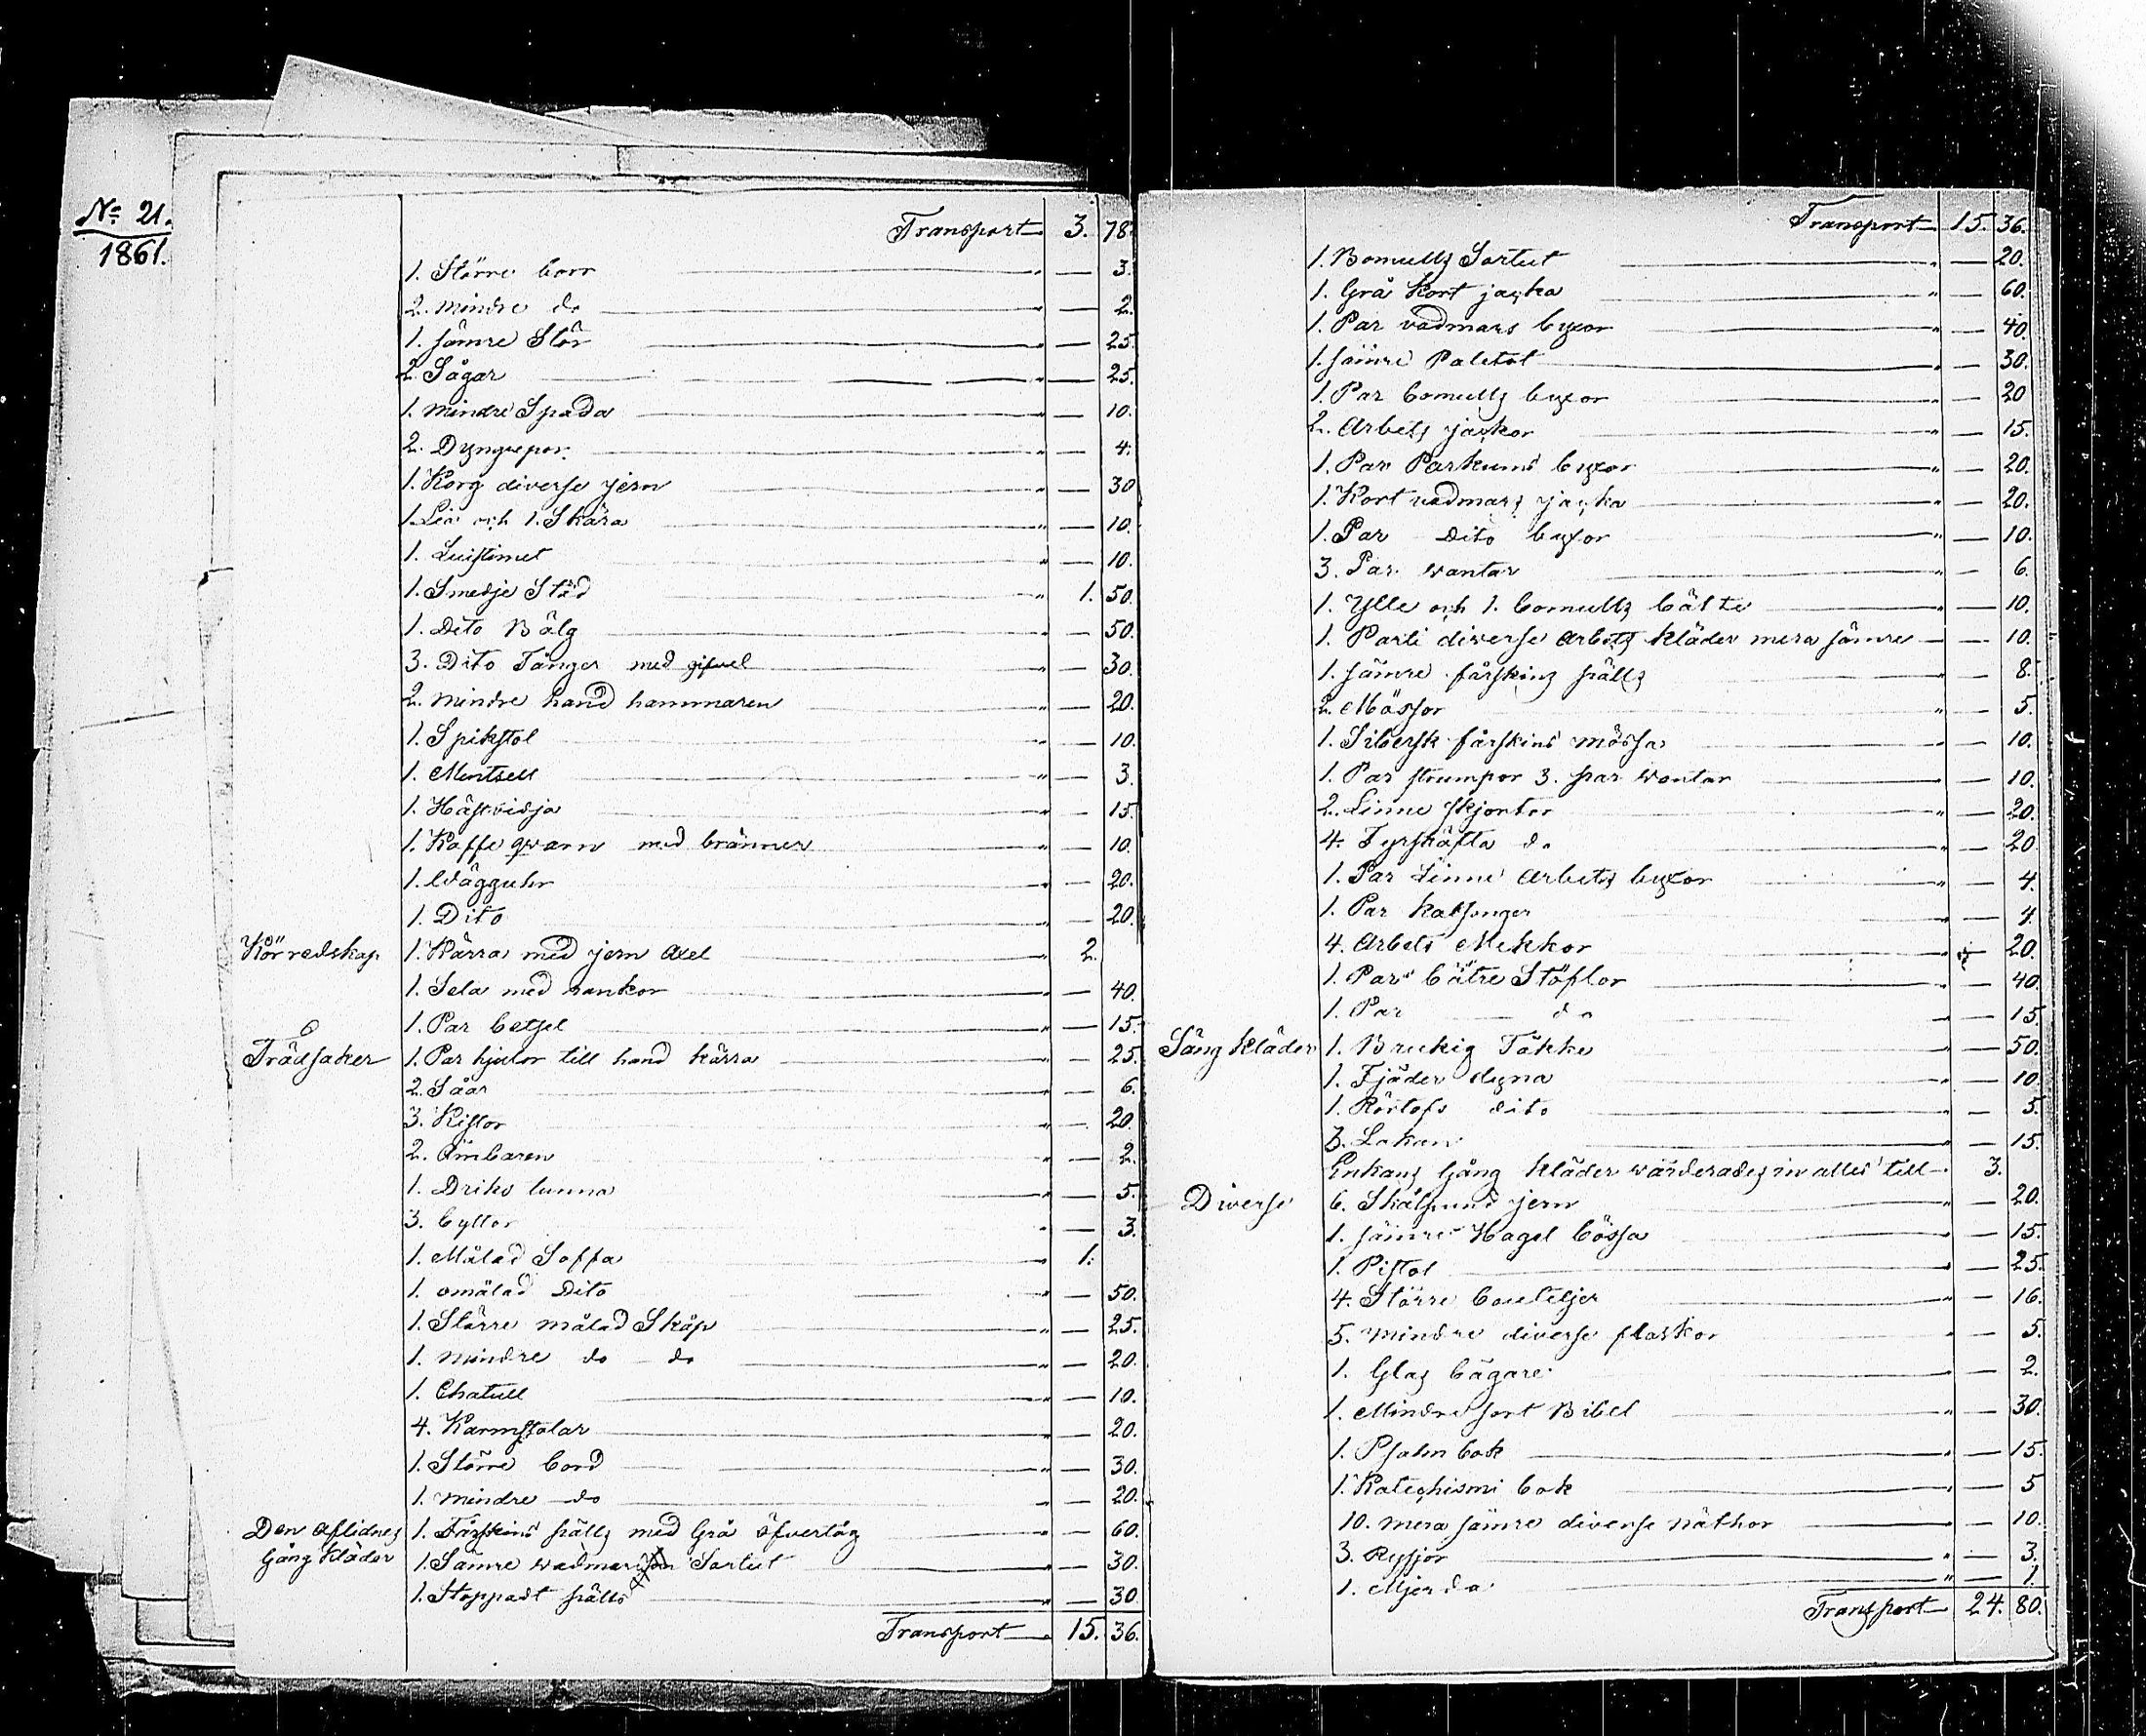 No 21.
1861.
Transport 3. 78.
1. Större borr " — 3.
2. mindre do " — 2.
1. sämre Stör " — 25.
2. Sågar " — 25.
1. mindre Spada " — 10.
2. Dyngrepor " — 4.
1. Korg diverse jern " — 30
1. Lia och 1. Skära " — 10.
1. Luistimet " — 10.
1. Smedje Städ " 1. 50.
1. Dito Bälg " — 50.
3. Dito Tänger med " — 30.
2. mindre hand hammaren " — 20.
1. Spikstol " — 10.
1. " — 3.
1. Hästvidja " — 15.
1. Kaffe qvarn med bränner " — 10.
1. Vägguhr " — 20.
1. Dito " — 20.
Körredskap 1. Kärra med jern Axel " 2.
1. Sela med rankor " — 40.
1. Par betsel " — 15.
Trädsaker 1. Par hjulor till hand kärra " — 25.
2. Såar " — 6.
3. Kistor " — 20.
2. Ämbaren " — 2.
1. Driks tunna " — 5.
3. byttor " — 3.
1. Målad Soffa " 1.
1. omålad Dito " — 50.
1. Större målad Skåp " — 25.
1. mindre do do " — 20.
1. Chatull " — 10.
4. Karmstolar " — 20.
1. Större bord " — 30.
1. mindre do " — 20.
Den aflidnes 1. Fårskins pälls med Grå öfvertåg " — 60.
Gång kläder 1. Sämre wadmars Sortut " — 30.
1. Stoppadt pälls " — 30
Transport 15. 36.
Transport 15. 36.
1. Bomulls Sortut " — 20.
1. Grå Kort jacka " — 60.
1. Par vadmars byxor " — 40.
1. sämre Paletot " — 30.
1. Par bomulls byxor " — 20
2. Arbets jackor " — 15.
1. Par Parkums byxor " — 20.
1. Kort vadmars jacka " — 20.
1. Par Dito byxor " — 10.
3. Par wantar " — 6.
1. Ylle och 1. bomulls bälte " — 10.
1. Parti diverse Arbets kläder mera sämre — — 10.
1. sämre fårskins pälls " — 8.
2. Mössor " — 5.
1. Sibersk fårskins mössa " — 10.
1. Par strumpor 3. par wantar " — 10.
2. Linne skjortor " — 20.
4. Fyrskäfta do " — 20
1. Par Linne Arbets byxor " — 4.
1. Par kalsonger " — 4.
4. Arbets Mekkor " — 20.
1. Par bätre Stöflor " — 40.
1. Par do " — 15.
Säng kläder 1. Brukig Täkke " — 50.
1. Fjäder dyna " — 10
1. Rörtofs dito " — 5.
3. Lakan " — 15.
Enkans Gång kläder wärderades in alles till 3.
Diverse 6. Skålpund jern " — 20.
1. sämre Hagel bössa " — 15.
1. Pistol " — 25.
4. Större bouteljer " — 16.
5. mindre diverse flaskor " — 5.
1. Glas bägare " — 2.
1. Mindre sort Bibel " — 30.
1. Psalm bok " — 15.
1. Katechismi bok " — 5
10. mera sämre diverse näthor " — 10.
3. Ryssjor " — 3.
1. Mjerda " — 1.
Transport 24. 80.